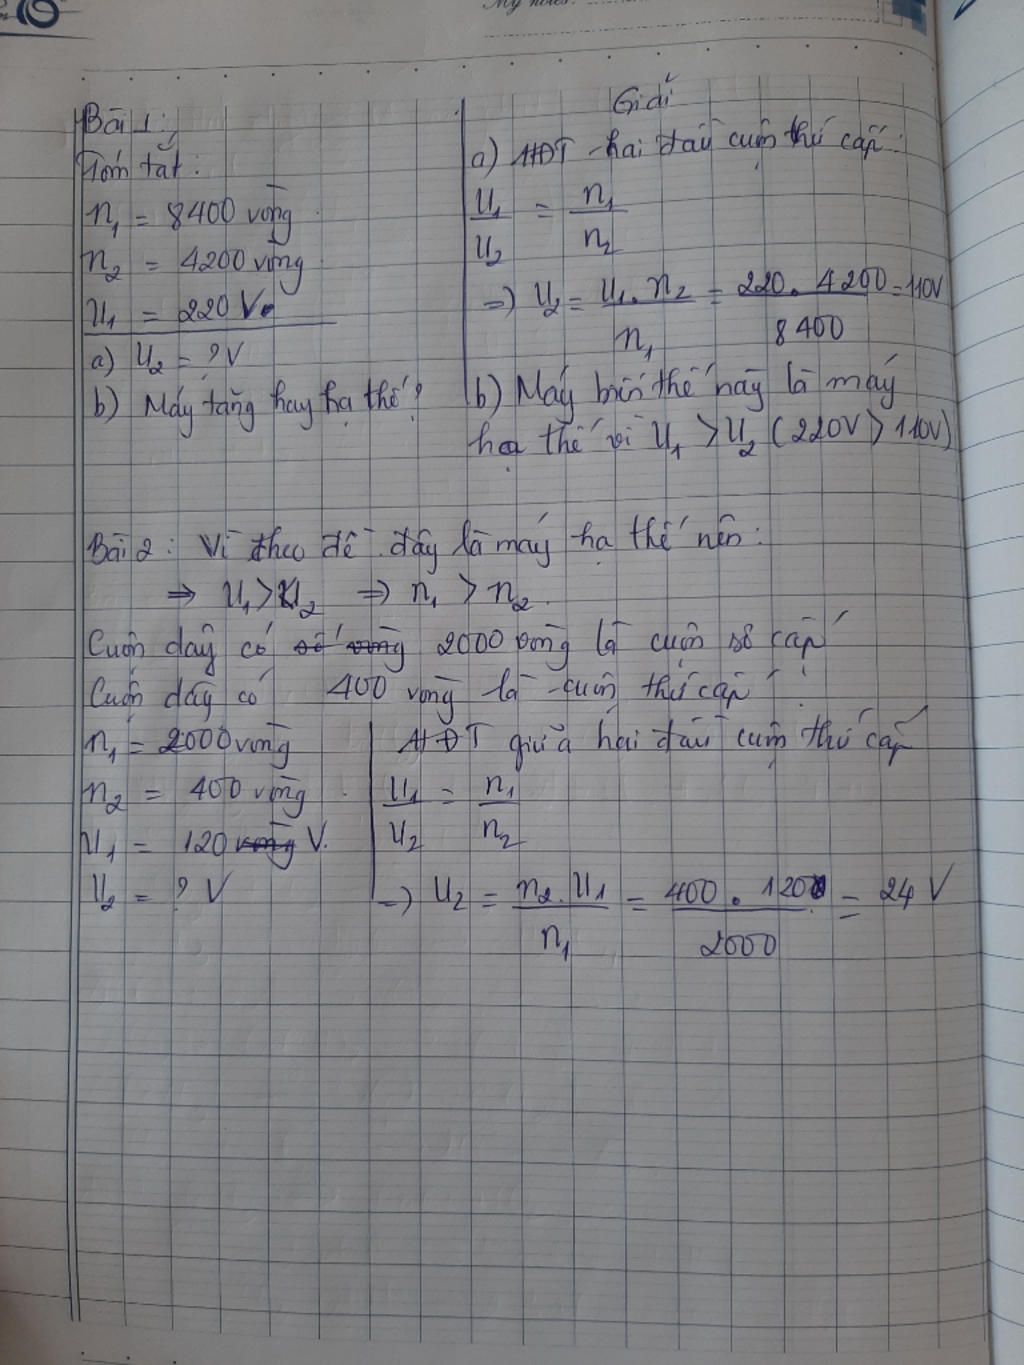 My notes:
Bài 1:
Tóm tắt:
n₁ = 8400 vòng
n₂ = 4200 vòng
U₁ = 220 V
a) U₂ = ? V
b) Máy tăng hay hạ thế?
Giải
a) HĐT hai đầu cuộn thứ cấp:
U₁/U₂ = n₁/n₂
=> U₂ = U₁.n₂/n₁ = 220.4200/8400 = 110V
b) Máy biến thế này là máy
hạ thế vì U₁ > U₂ (220V > 110V)
Bài 2: Vì theo đề đây là máy hạ thế nên:
=> U₁ > U₂ => n₁ > n₂.
Cuộn dây có số vòng 2000 vòng là cuộn sơ cấp
Cuộn dây có 400 vòng là cuộn thứ cấp
n₁ = 2000 vòng
n₂ = 400 vòng
U₁ = 120 vòng V.
U₂ = ? V
HĐT giữa hai đầu cuộn thứ cấp
U₁/U₂ = n₁/n₂
=> U₂ = n₂.U₁/n₁ = 400.120/2000 = 24 V